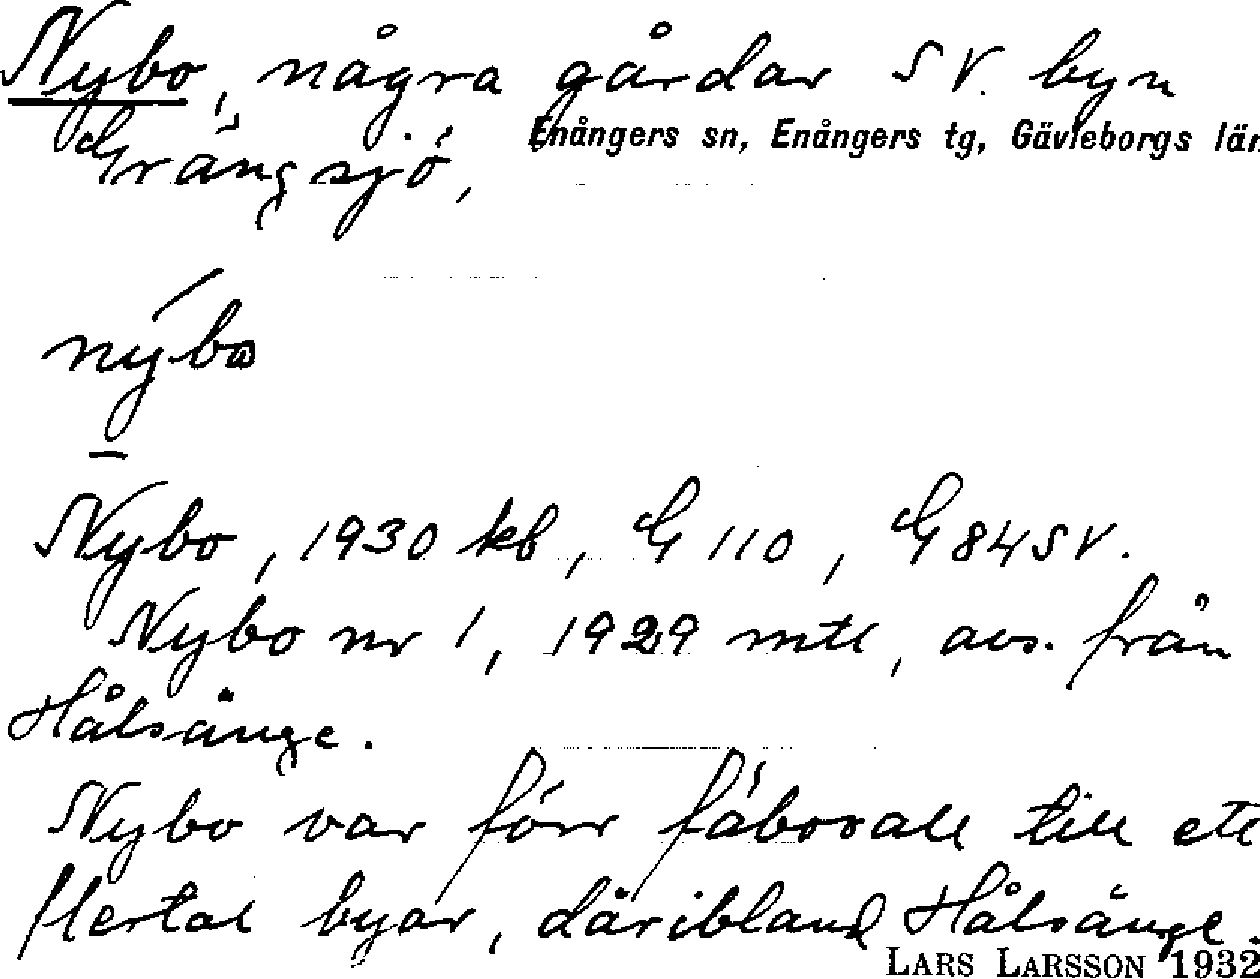 Nybo, några gårdar SV. byn
Enångers sn, Enångers tg, Gävleborgs län
Grängsjö,
nýbo
Nybo, 1930 kb, G 110, G 84 SV.
Nybo nr 1, 1929 mtl, avs. från
Hålsänge.
Nybo var förr fäbovall till ett
flertal byar, däribland Hålsänge.
LARS LARSSON 1932